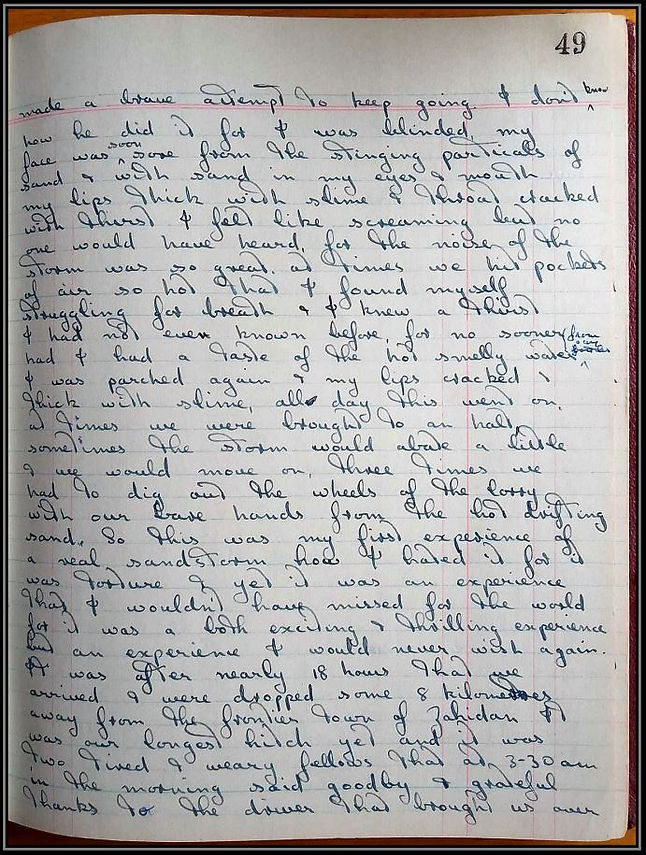 49
made a brave attempt to keep going. I don't know
how he did it for I was blinded my
face was soon sore from the stinging particals of
sand & with sand in my eyes & mouth
my lips thick with slime & throat cracked
with thirst I felt like screaming but no
one would have heard, for the noise of the
storm was so great. at times we hit pockets
of air so hot that I found myself
struggling for breath & I knew a thirst
I had not ever known before, for no sooner
had I had a taste of the hot smelly water from our bottles
I was parched again & my lips cracked &
thick with slime, all day this went on,
at times we were brought to an halt,
sometimes the storm would abate a little
& we would move on, three times we
had to dig out the wheels of the lorry
with our bare hands from the hot drifting
sand. So this was my first experience of
a real sandstorm how I hated it for it
was torture & yet it was an experience
that I wouldn't have missed for the world
for it was a both exciting & thrilling experience
but an experience I would never wish again.
It was after nearly 18 hours that we
arrived & were dropped some 8 kilometres
away from the frontier town of Zahidan It
was our longest hitch yet and it was
two tired & weary fellows that at 3-30 am
in the morning said goodby & grateful
thanks to the driver that brought us over